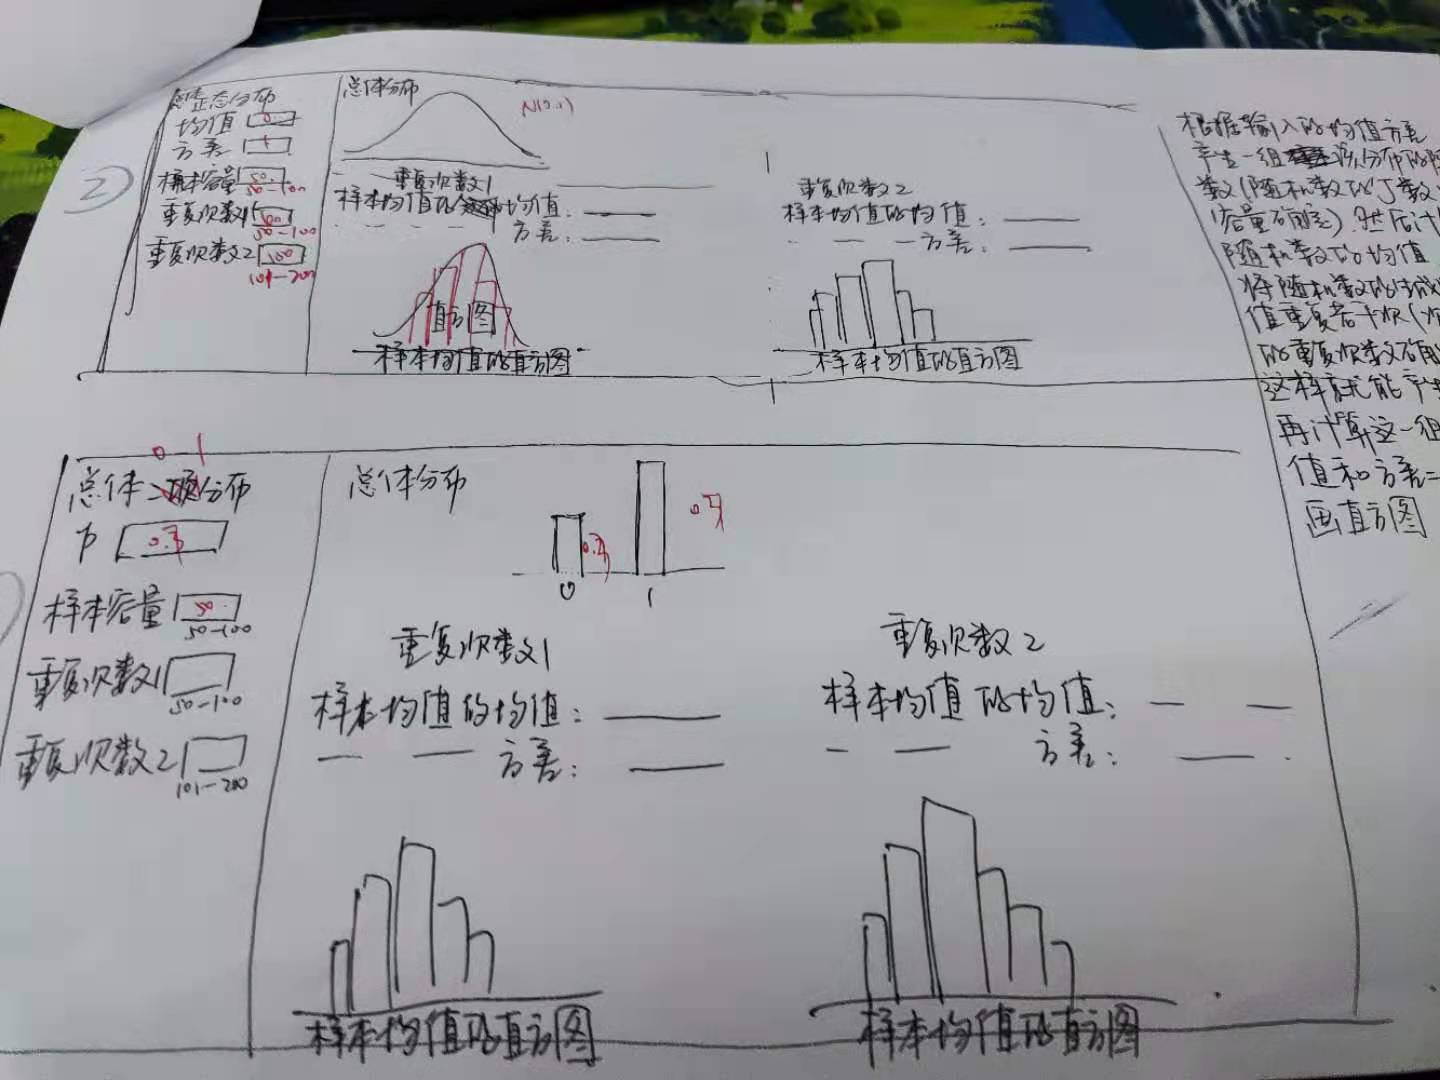 ②
总体正态分布
均值 0
方差 1
样本容量 50
50-100
重复次数1 50
50-100
重复次数2 100
101-200
总体分布
N(0,1)
重复次数1
样本均值的均值:
方差:
直方图
样本均值的直方图
重复次数2
样本均值的均值:
方差:
样本均值的直方图
根据输入的均值方差
产生一组该分布的随
数(随机数的个数
容量确定).然后计
随机数的均值
将随机数的生成
值重复若干次(
的重复次数确
这样就能产生
再计算这一组
值和方差
画直方图
0 1
总体 分布
p 0.3
样本容量 50
50-100
重复次数1
50-100
重复次数2
101-200
总体分布
0.3
0.7
0
1
重复次数1
样本均值的均值:
方差:
样本均值的直方图
重复次数2
样本均值的均值:
方差:
样本均值的直方图